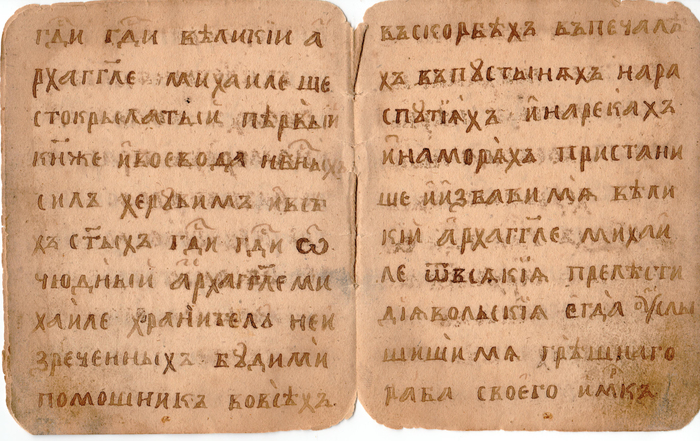 гд҃и гд҃и вѣликїи а҆
рхагг҃ле михаиле ше
стокрылатый пѣрвый
кн҃же и҆воевода нб҃ныхъ
силъ херувимъ и҆всѣ
хъ ст҃ыхъ гд҃и гд҃и ѽ
чюдный а҆рхагг҃ле ми
хаиле хранителъ неи
зреченныхъ будими
помошникъ вовсѣхъ.
въскорбѣхъ въпечалѧ
хъ въпустынѧхъ нара
спутїѧхъ и҆нарекахъ
и҆наморѧхъ пристани
ше и҆и҆збавимѧ вѣли
кїй а҆рхагг҃ле михаи
ле ѿвсѧкїѧ прелѣсти
дїѧволъскїѧ егда ꙋ҆слы
шишимѧ грѣшнаго
раба своего имкъ